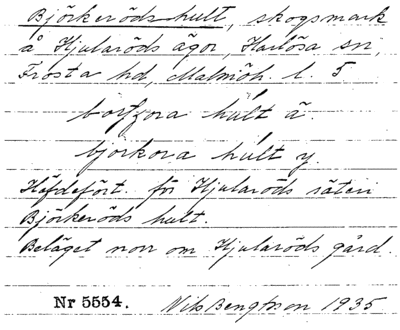 Björkeröds hult, skogsmark
å Hjularöds ägor, Harlösa sn,
Frosta hd, Malmöh. l. 5
hult ä.
björkora hult y
för Hjularöds säteri
Björkeröds hult.
Beläget norr om Hjularöds gård.
Nr 5554. Nils Bengtsson 1935